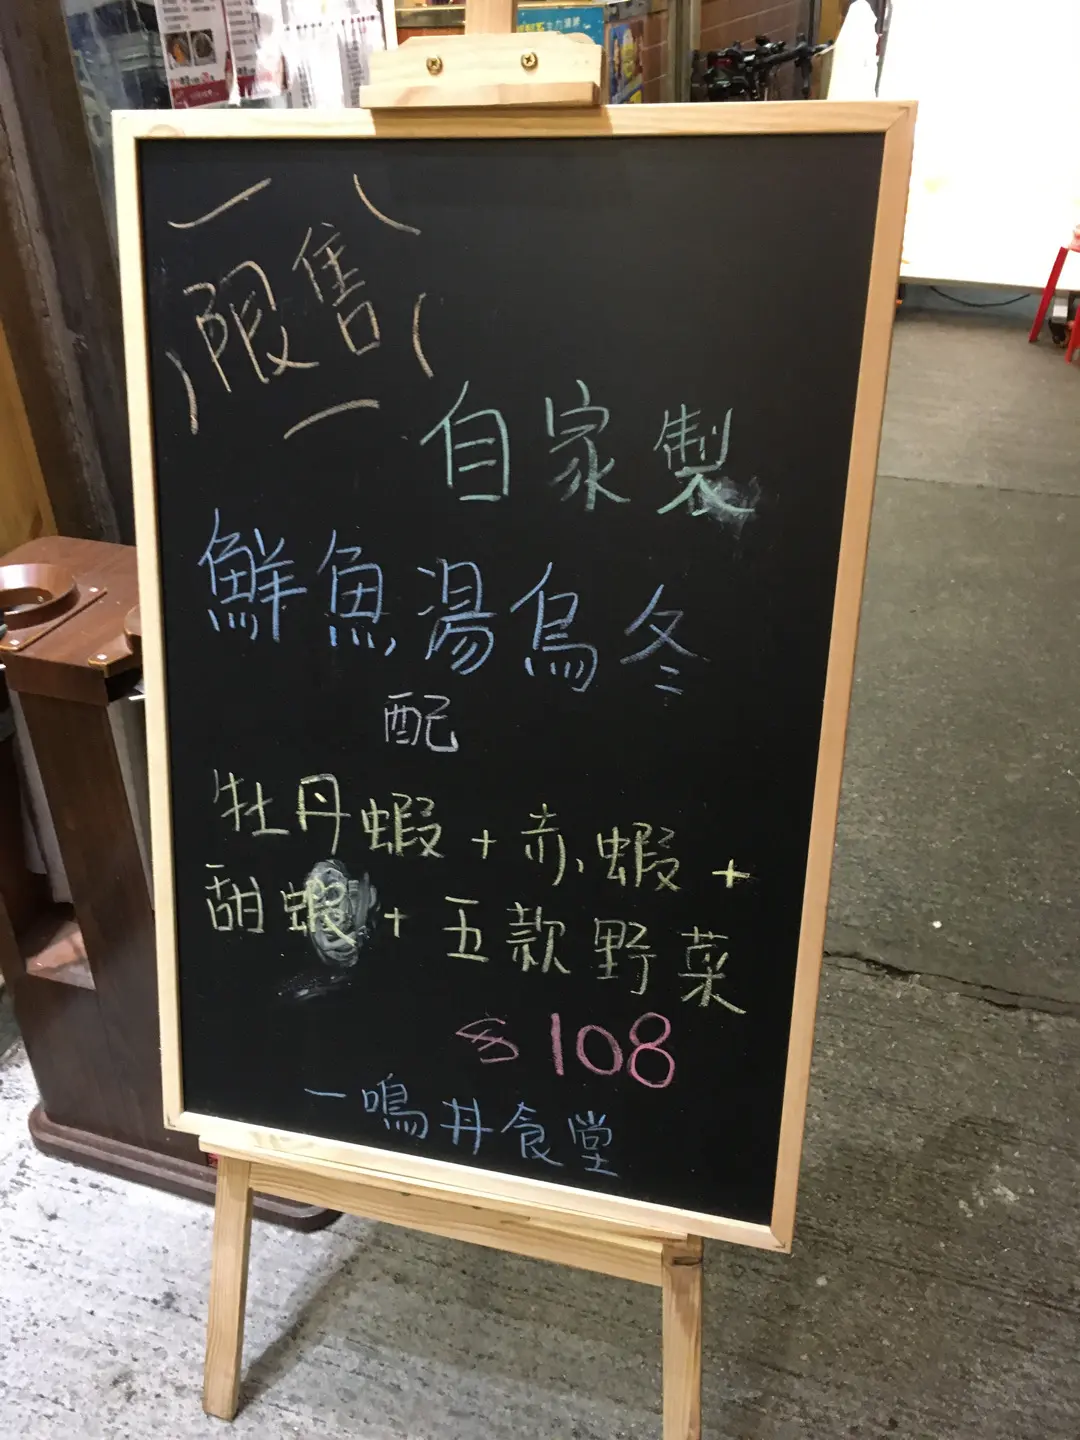 限售
自家製
鮮魚湯烏冬
配
牡丹蝦+赤蝦+
甜蝦+五款野菜
$108
一鳴丼食堂